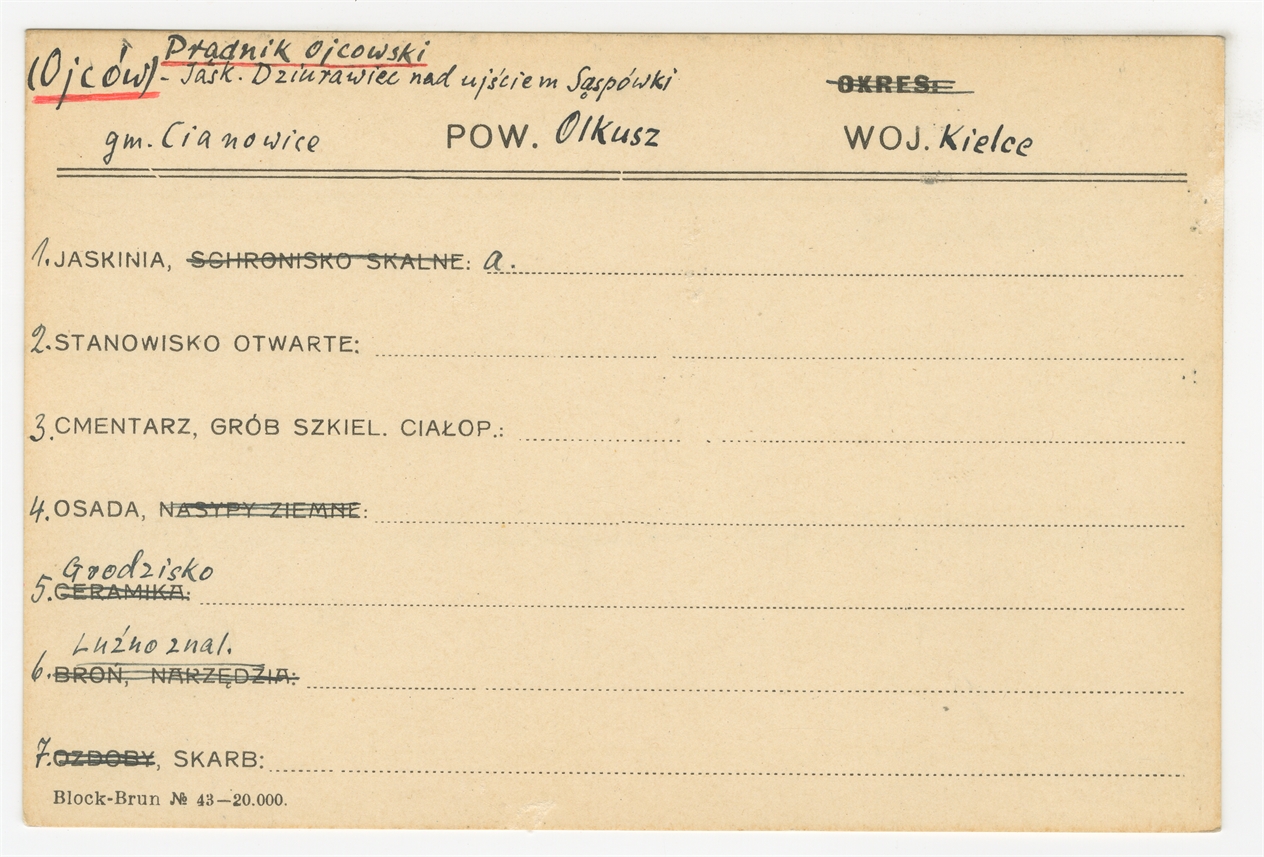 Prądnik Ojcowski
(Ojców) - Jask. Dziurawiec nad ujściem Sąspówki
OKRES:
gm. Cianowice POW. Olkusz WOJ. Kielce
1. JASKINIA, SCHRONISKO SKALNE: a.
2. STANOWISKO OTWARTE:
3. CMENTARZ, GRÓB SZKIEL. CIAŁOP.:
4. OSADA, NASYPY ZIEMNE:
Grodzisko
5. CERAMIKA:
Luźno znal.
6. BROŃ, NARZĘDZIA:
7. OZDOBY, SKARB:
Block-Brun № 43—20.000.